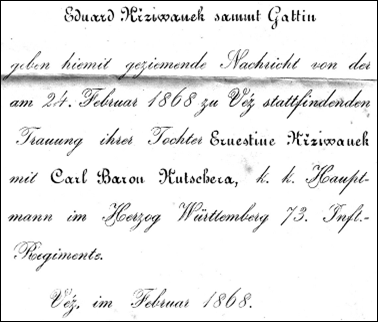 Eduard Křziwanek sammt Gattin
geben hiemit geziemende Nachricht von der
am 24. Februar 1868 zu Véz stattfindenden
Trauung ihrer Tochter Ernestine Křziwanek
mit Carl Baron Kutschera, k. k. Haupt-
mann im Herzog Württemberg 73. Inft.-
Regimente.
Véz, im Februar 1868.